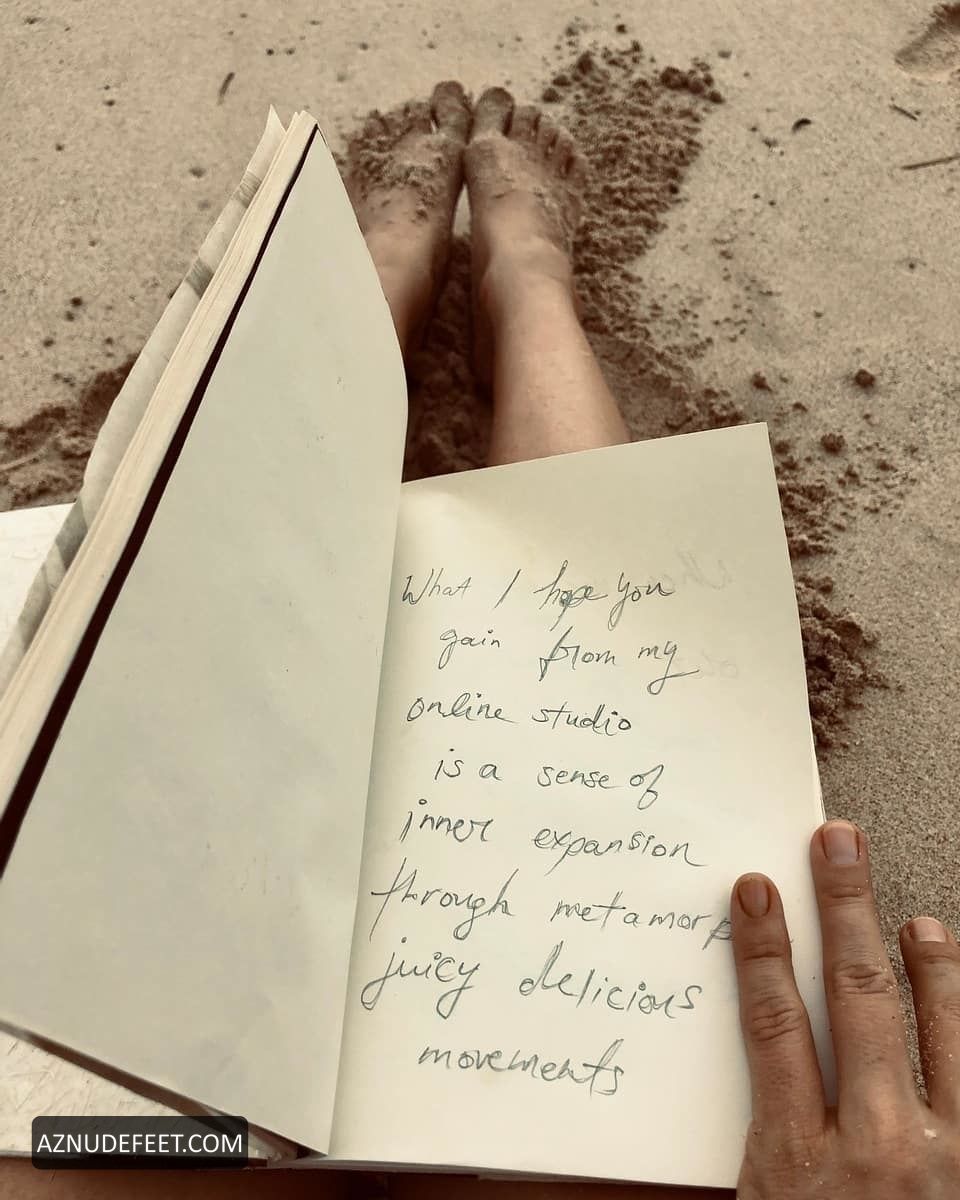 What I hope you
gain from my
online studio
is a sense of
inner expansion
through metamorp
juicy delicious
movements
AZNUDEFEET.COM